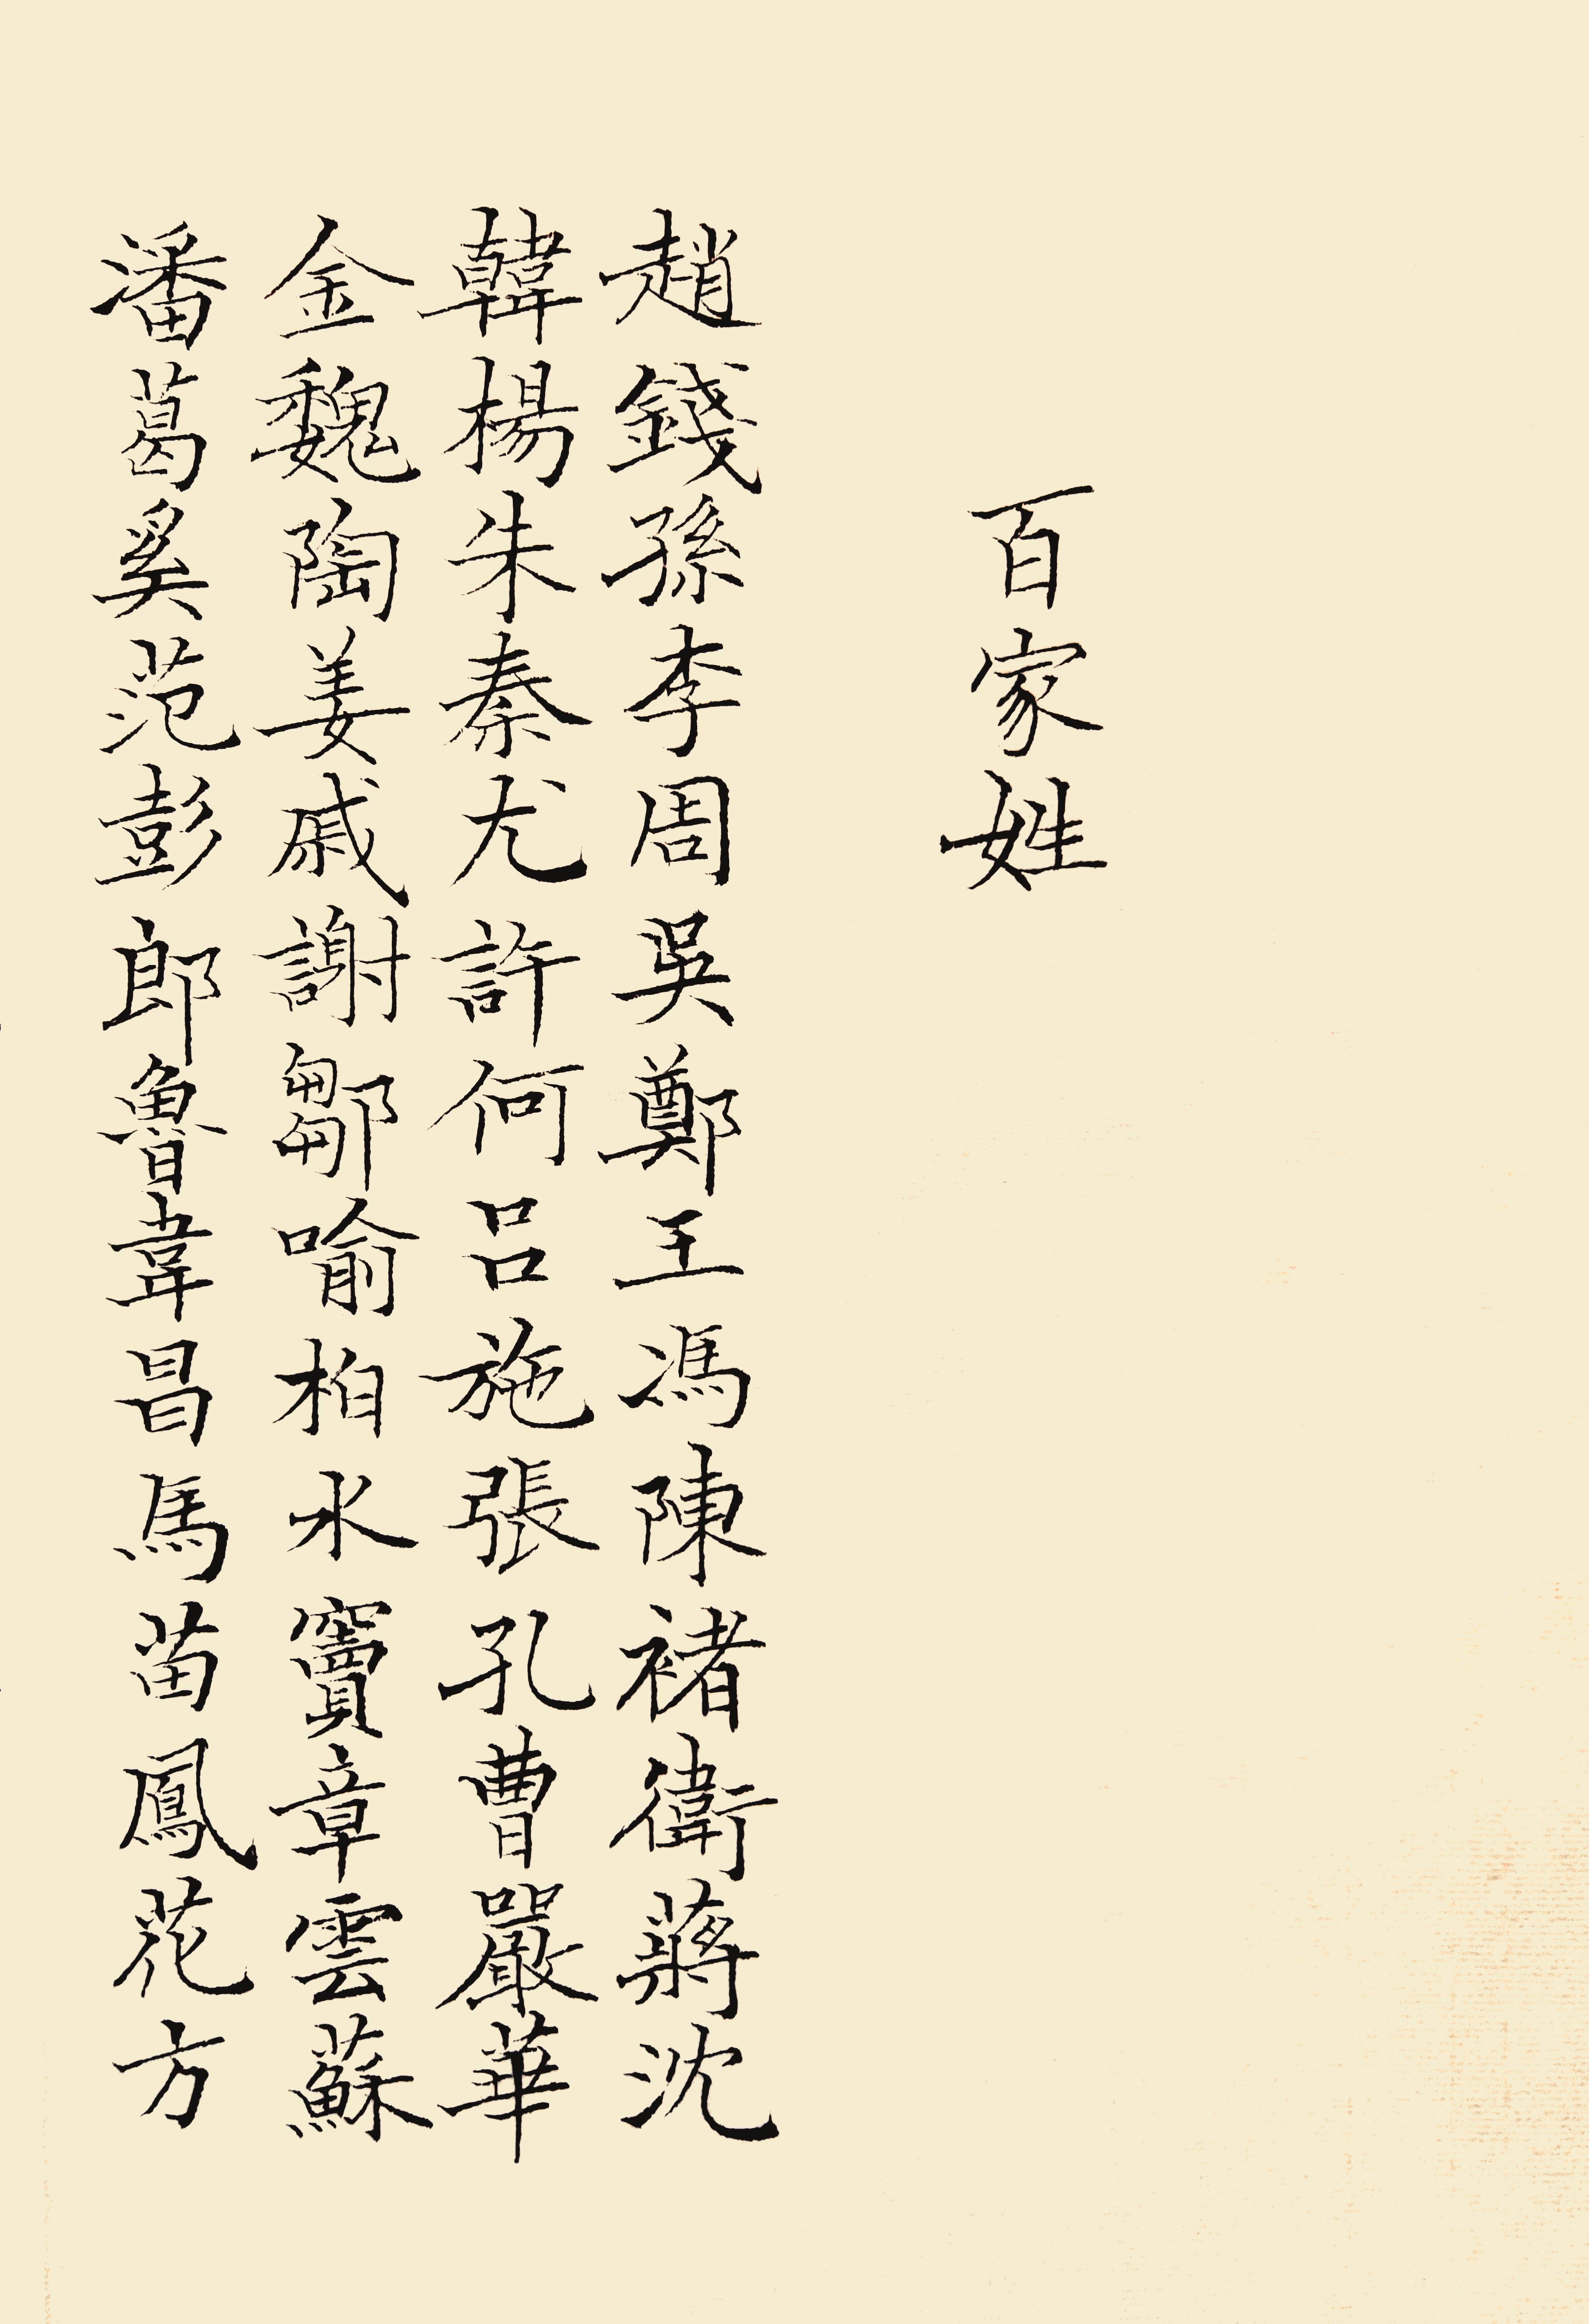 百家姓
趙錢孫李周吳鄭王馮陳褚衛蔣沈
韓楊朱秦尤許何呂施張孔曹嚴華
金魏陶姜戚謝鄒喻柏水竇章雲蘇
潘葛奚范彭郎魯韋昌馬苗鳳花方